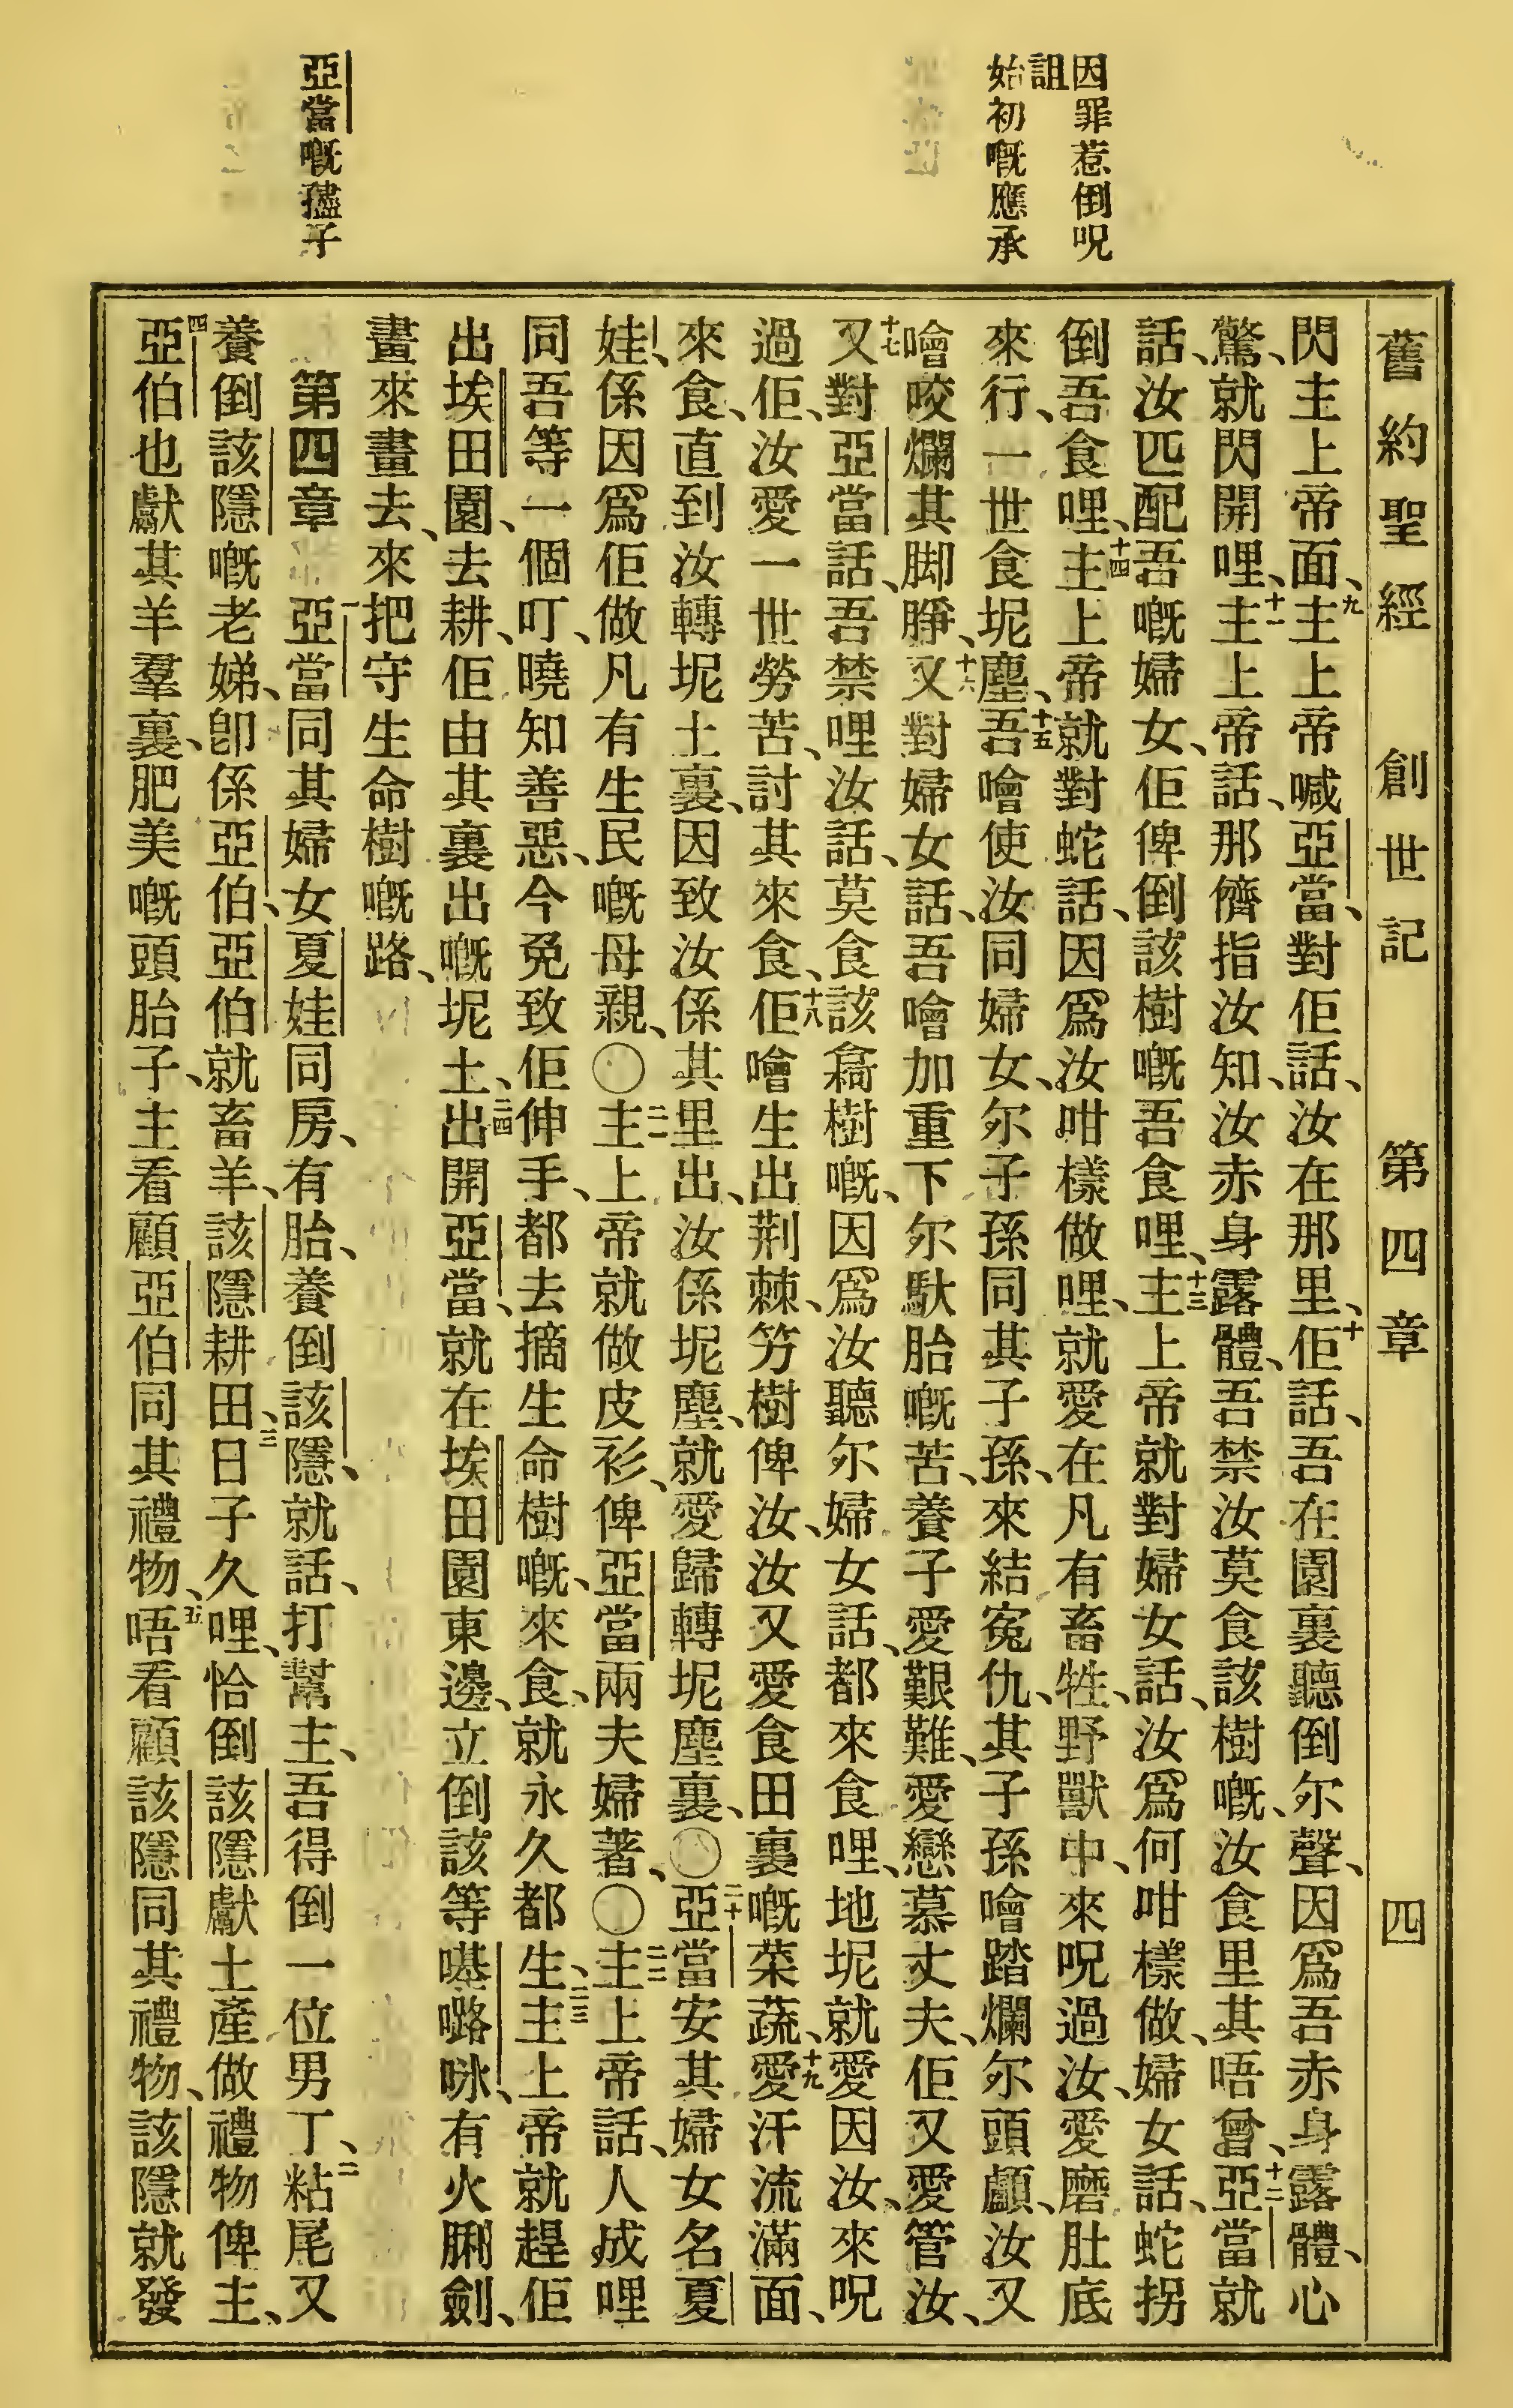 舊約聖經　創世記　第四章　四
因罪惹倒呪
詛
始初嘅應承
亞當嘅孻子
閃主上帝面、九主上帝喊亞當、對佢話、汝在那里、十佢話、吾在園裏聽倒尔聲、因爲吾赤身露體、心
驚、就閃開哩、十一主上帝話、那儕指汝知、汝赤身露體、吾禁汝莫食該樹嘅、汝食里其唔曾、十二亞當就
話、汝匹配吾嘅婦女、佢俾倒該樹嘅吾食哩、十三主上帝就對婦女話、汝爲何咁樣做、婦女話、蛇拐
倒吾食哩、十四主上帝就對蛇話、因爲汝咁樣做哩、就愛在凡有畜牲、野獸中、來呪過汝、愛磨肚底
來行、一世食坭塵、十五吾噲使汝同婦女、尔子孫同其子孫、來結寃仇、其子孫噲踏爛尔頭顱、汝又
噲咬爛其脚睜、十六又對婦女話、吾噲加重下尔馱胎嘅苦、養子愛艱難、愛戀慕丈夫、佢又愛管汝、
十七又對亞當話、吾禁哩汝話、莫食該樖樹嘅、因爲汝聽尔婦女話、都來食哩、地坭就愛因汝、來呪
過佢、汝愛一世勞苦、討其來食、十八佢噲生出荆棘、竻樹俾汝、汝又愛食田裏嘅菜蔬、十九愛汗流滿面、
來食、直到汝轉坭土裏、因致汝係其里出、汝係坭塵、就愛歸轉坭塵裏、〇二十亞當安其婦女名夏
娃、係因爲佢做凡有生民嘅母親、〇二一主上帝就做皮衫、俾亞當兩夫婦著、〇二二主上帝話、人成哩
同吾等一個叮、曉知善惡、今免致佢伸手、都去摘生命樹嘅、來食、就永久都生、二三主上帝就趕佢
出埃田園、去耕、佢由其裏出嘅坭土、二四出開亞當、就在埃田園東邊、立倒該等𠻳嚕咏、有火脷劍、
畫來畫去、來把守生命樹嘅路、
第四章　一亞當同其婦女夏娃同房、有胎、養倒該隱、就話、打幫主、吾得倒一位男丁、二粘尾又
養倒該隱嘅老娣、卽係亞伯、亞伯就畜羊、該隱耕田、三日子久哩、恰倒該隱獻土產做禮物俾主、
四亞伯也獻其羊羣裏、肥美嘅頭胎子、主看顧亞伯同其禮物、五唔看顧該隱同其禮物、該隱就發